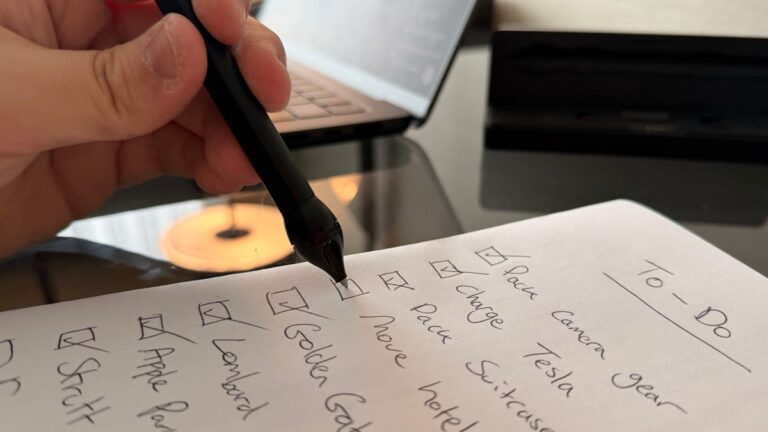 To-Do
Pack camera gear
Charge Tesla
Pack Suitcase
Move hotel
Golden Gat
Lombard
Apple Par
Stratt